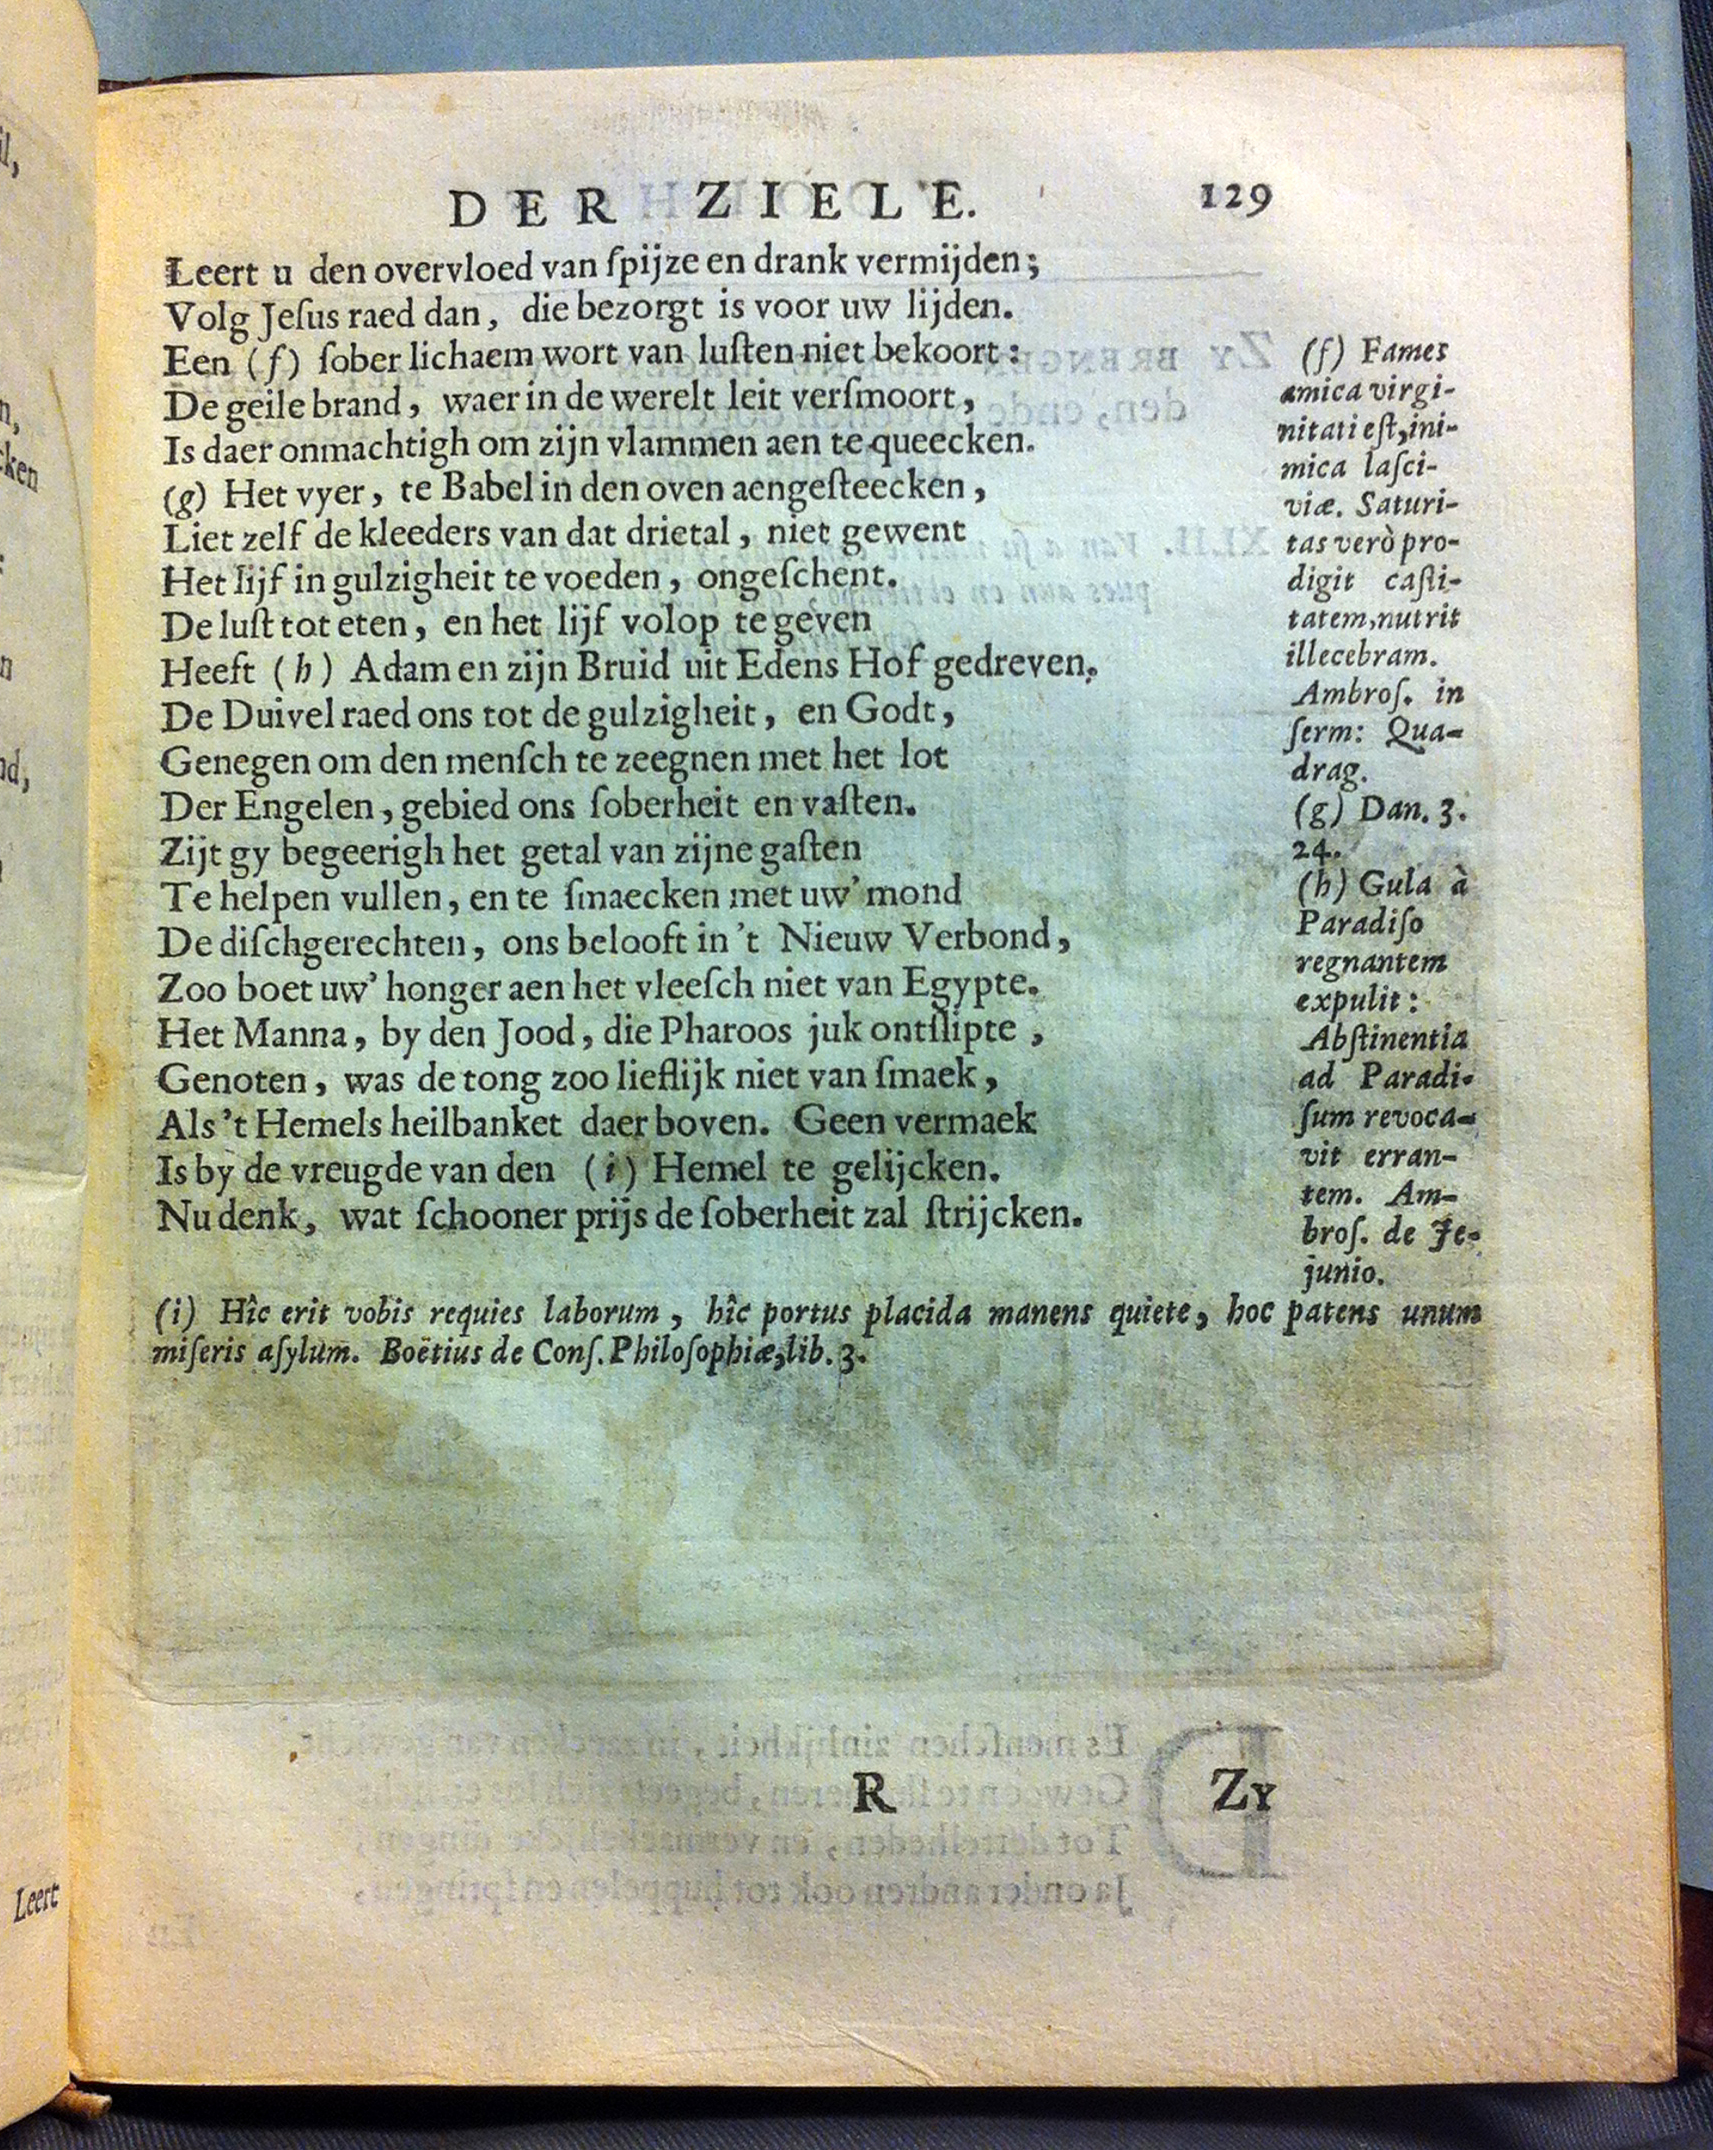 DER ZIELE. 129
Leert u den overvloed van ſpijze en drank vermijden;
Volg Jeſus raed dan, die bezorgt is voor uw lijden.
Een (f) ſober lichaem wort van luſten niet bekoort:
De geile brand, waer in de werelt leit verſmoort,
Is daer onmachtigh om zijn vlammen aen te queecken.
(g) Het vyer, te Babel in den oven aengeſteecken,
Liet zelf de kleeders van dat drietal, niet gewent
Het lijf in gulzigheit te voeden, ongeſchent.
De luſt tot eten, en het lijf volop te geven
Heeft (h) Adam en zijn Bruid uit Edens Hof gedreven.
De Duivel raed ons tot de gulzigheit, en Godt,
Genegen om den menſch te zeegnen met het lot
Der Engelen, gebied ons ſoberheit en vaſten.
Zijt gy begeerigh het getal van zijne gaſten
Te helpen vullen, en te ſmaecken met uw' mond
De diſchgerechten, ons belooft in 't Nieuw Verbond,
Zoo boet uw' honger aen het vleeſch niet van Egypte.
Het Manna, by den Jood, die Pharoos juk ontſlipte,
Genoten, was de tong zoo lieflijk niet van ſmaek,
Als 't Hemels heilbanket daer boven. Geen vermaek
Is by de vreugde van den (i) Hemel te gelijcken.
Nu denk, wat ſchooner prijs de ſoberheit zal ſtrijcken.
(f) Fames
amica virgi-
nitati eſt, ini-
mica laſci-
viæ. Saturi-
tas verò pro-
digit caſti-
tatem, nutrit
illecebram.
Ambroſ. in
ſerm: Qua-
drag.
(g) Dan. 3.
24.
(h) Gula à
Paradiſo
regnantem
expulit:
Abſtinentia
ad Paradi-
ſum revoca-
vit erran-
tem. Am-
broſ. de Je-
junio.
(i) Hîc erit vobis requies laborum, hîc portus placida manens quiete, hoc patens unum
miſeris aſylum. Boëtius de Conſ. Philoſophiæ, lib. 3.
R ZY
Leert